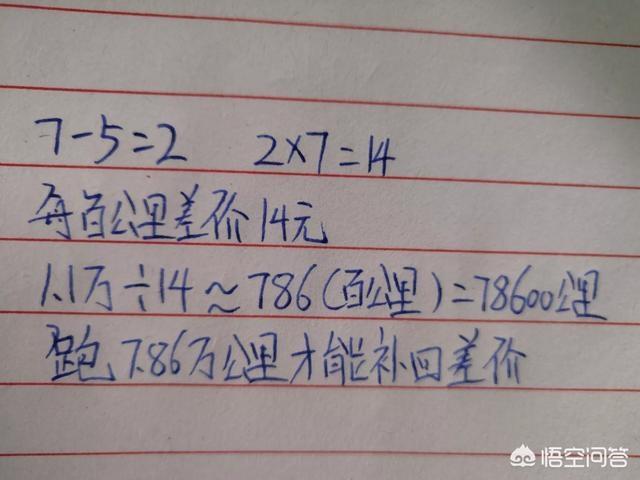 7-5=2 2×7=14
每百公里差价14元
1.1万÷14≈786(百公里)=78600公里
跑7.86万公里才能补回差价
悟空问答